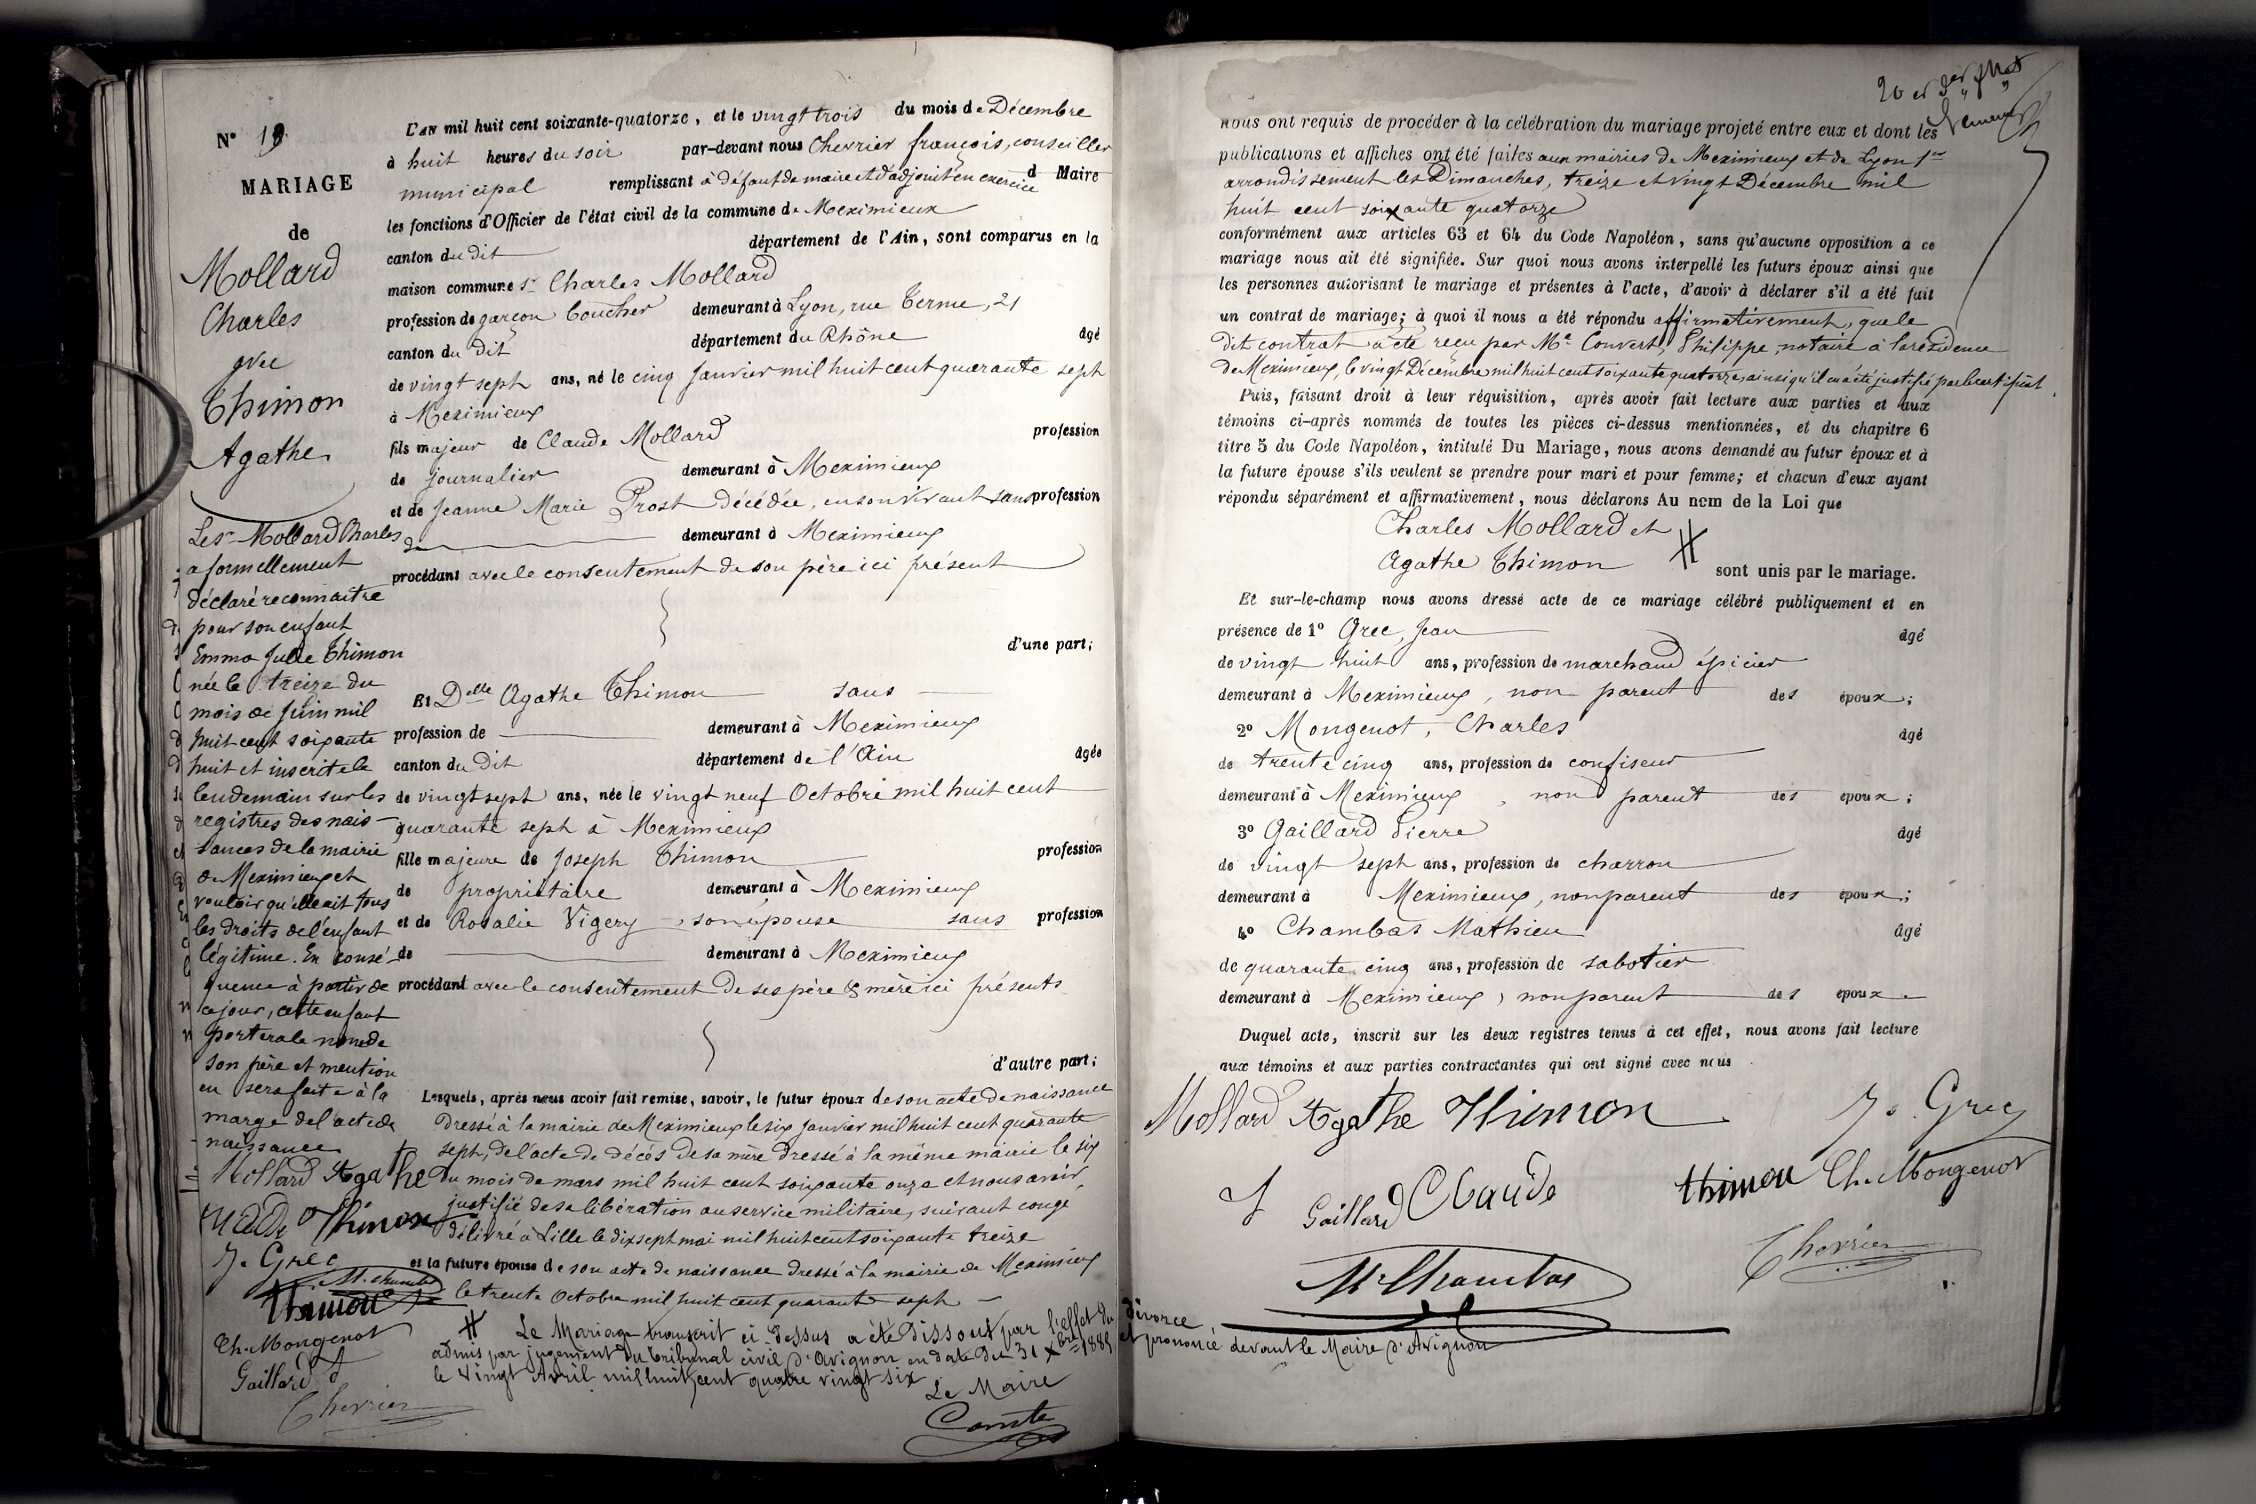 N° 19
MARIAGE
de
Mollard
Charles
avec
Thimon
Agathe
Le sr Mollard Charles
a formellement
déclaré reconnaitre
pour son enfant
Emma Julie Thimon
née le treize du
mois de Juin mil
huit cent soixante
huit et inscrite le
lendemain sur les
registres des nais-
sances de la mairie
de Meximieux et
vouloir qu'elle ait tous
les droits de l'enfant
légitime. En consé-
quence à partir de
ce jour, cette enfant
portera le nom de
son père et mention
en sera faite à la
marge de l'acte de
naissance
Mollard Agathe
Thimon
J. Grec
M. Chambas
thimon
Ch. Mongenot
Gaillard
Chevrier
L'AN mil huit cent soixante-quatorze, et le vingt trois du mois de Décembre
à huit heures du soir par-devant nous Chevrier françois, conseiller
municipal remplissant à défaut de maire et d'adjoint en exercice d Maire
les fonctions d'Officier de l'état civil de la commune de Meximieux
canton du dit département de l'Ain, sont comparus en la
maison commune sr Charles Mollard
profession de garçon boucher demeurant à Lyon, rue Terme, 21
canton du dit département du Rhône âgé
de vingt sept ans, né le cinq Janvier mil huit cent quarante sept
à Meximieux
fils majeur de Claude Mollard profession
de journalier demeurant à Meximieux
et de Jeanne Marie Prost décédée, en son vivant sans profession
de demeurant à Meximieux
procédant avec le consentement de son père ici présent
d'une part;
Et Delle Agathe Thimon sans
profession de demeurant à Meximieux
canton du dit département de l'Ain âgée
de vingt sept ans, née le vingt neuf Octobre mil huit cent
quarante sept à Meximieux
fille majeure de Joseph Thimon profession
de propriétaire demeurant à Meximieux
et de Rosalie Vigery, son épouse sans profession
de demeurant à Meximieux
procédant avec le consentement de ses père & mère ici présents
d'autre part;
Lesquels, après nous avoir fait remise, savoir, le futur époux de son acte de naissance
dressé à la mairie de Meximieux le six Janvier mil huit cent quarante
sept, de l'acte de décès de sa mère dressé à la même mairie le six
du mois de mars mil huit cent soixante onze et nous avoir
justifié de sa libération au service militaire, suivant congé
délivré à Lille le dix sept mai mil huit cent soixante treize
et la future épouse de son acte de naissance dressé à la mairie de Meximieux
le trente Octobre mil huit cent quarante sept
# Le Mariage transcrit ci-dessus a été dissout par l'effet du divorce
admis par jugement du tribunal civil d'Avignon en date du 31 Xbre 1885 et prononcé devant le Maire d'Avignon
le Vingt Avril mil huit cent quatre vingt six
Le Maire
Comte
20 et
nous ont requis de procéder à la célébration du mariage projeté entre eux et dont les
publications et affiches ont été faites aux mairies de Meximieux et de Lyon 1er
arrondissement les Dimanches, treize et vingt Décembre mil
huit cent soixante quatorze
conformément aux articles 63 et 64 du Code Napoléon, sans qu'aucune opposition à ce
mariage nous ait été signifiée. Sur quoi nous avons interpellé les futurs époux ainsi que
les personnes autorisant le mariage et présentes à l'acte, d'avoir à déclarer s'il a été fait
un contrat de mariage; à quoi il nous a été répondu affirmativement, que le
dit contrat a été reçu par Me Convert, Philippe, notaire à la résidence
de Meximieux, le vingt Décembre mil huit cent soixante quatorze, ainsi qu'il en a été justifié par le certificat
Puis, faisant droit à leur réquisition, après avoir fait lecture aux parties et aux
témoins ci-après nommés de toutes les pièces ci-dessus mentionnées, et du chapitre 6
titre 5 du Code Napoléon, intitulé Du Mariage, nous avons demandé au futur époux et à
la future épouse s'ils veulent se prendre pour mari et pour femme; et chacun d'eux ayant
répondu séparément et affirmativement, nous déclarons Au nom de la Loi que
Charles Mollard et
Agathe Thimon # sont unis par le mariage.
Et sur-le-champ nous avons dressé acte de ce mariage célébré publiquement et en
présence de 1° Grec, Jean âgé
de vingt huit ans, profession de marchand épicier
demeurant à Meximieux, non parent des époux;
2° Mongenot, Charles âgé
de trente cinq ans, profession de confiseur
demeurant à Meximieux, non parent des époux;
3° Gaillard Pierre âgé
de vingt sept ans, profession de charron
demeurant à Meximieux, non parent des époux;
4° Chambas Mathieu âgé
de quarante cinq ans, profession de sabotier
demeurant à Meximieux, non parent des époux.
Duquel acte, inscrit sur les deux registres tenus à cet effet, nous avons fait lecture
aux témoins et aux parties contractantes qui ont signé avec nous
Mollard Agathe Thimon J. Grec
Gaillard Claude thimon Ch. Mongenot
M. Chambas Chevrier